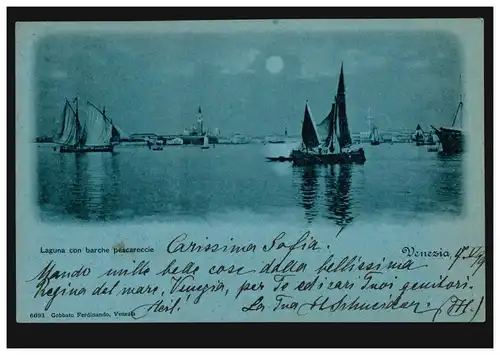 Laguna con barche pescareccie
Carissima Sofia!
Venezia
Mando mille belle cose dalla bellissima
Regina del mare, Venezia, per Te ed i cari Tuoi genitori.
La Tua Schneider
6691 Gobbato Ferdinando, Venezia